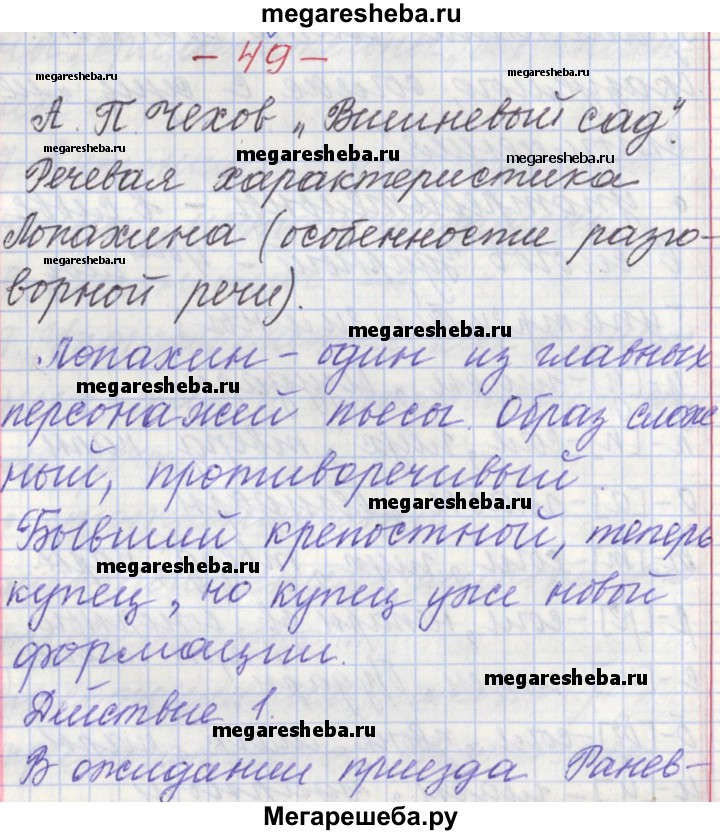 megaresheba.ru
- 49 -
megaresheba.ru
megaresheba.ru
А. П. Чехов „Вишневый сад“.
megaresheba.ru
megaresheba.ru
megaresheba.ru
Речевая характеристика
Лопахина (особенности разго-
megaresheba.ru
ворной речи).
megaresheba.ru
Лопахин - один из главных
megaresheba.ru
персонажей пьесы. Образ слож
ный, противоречивый.
megaresheba.ru
Бывший крепостной, теперь
megaresheba.ru
купец, но купец уже новой
формации.
megaresheba.ru
Действие 1.
megaresheba.ru
В ожидании приезда Ранев-
Мегарешеба.ру